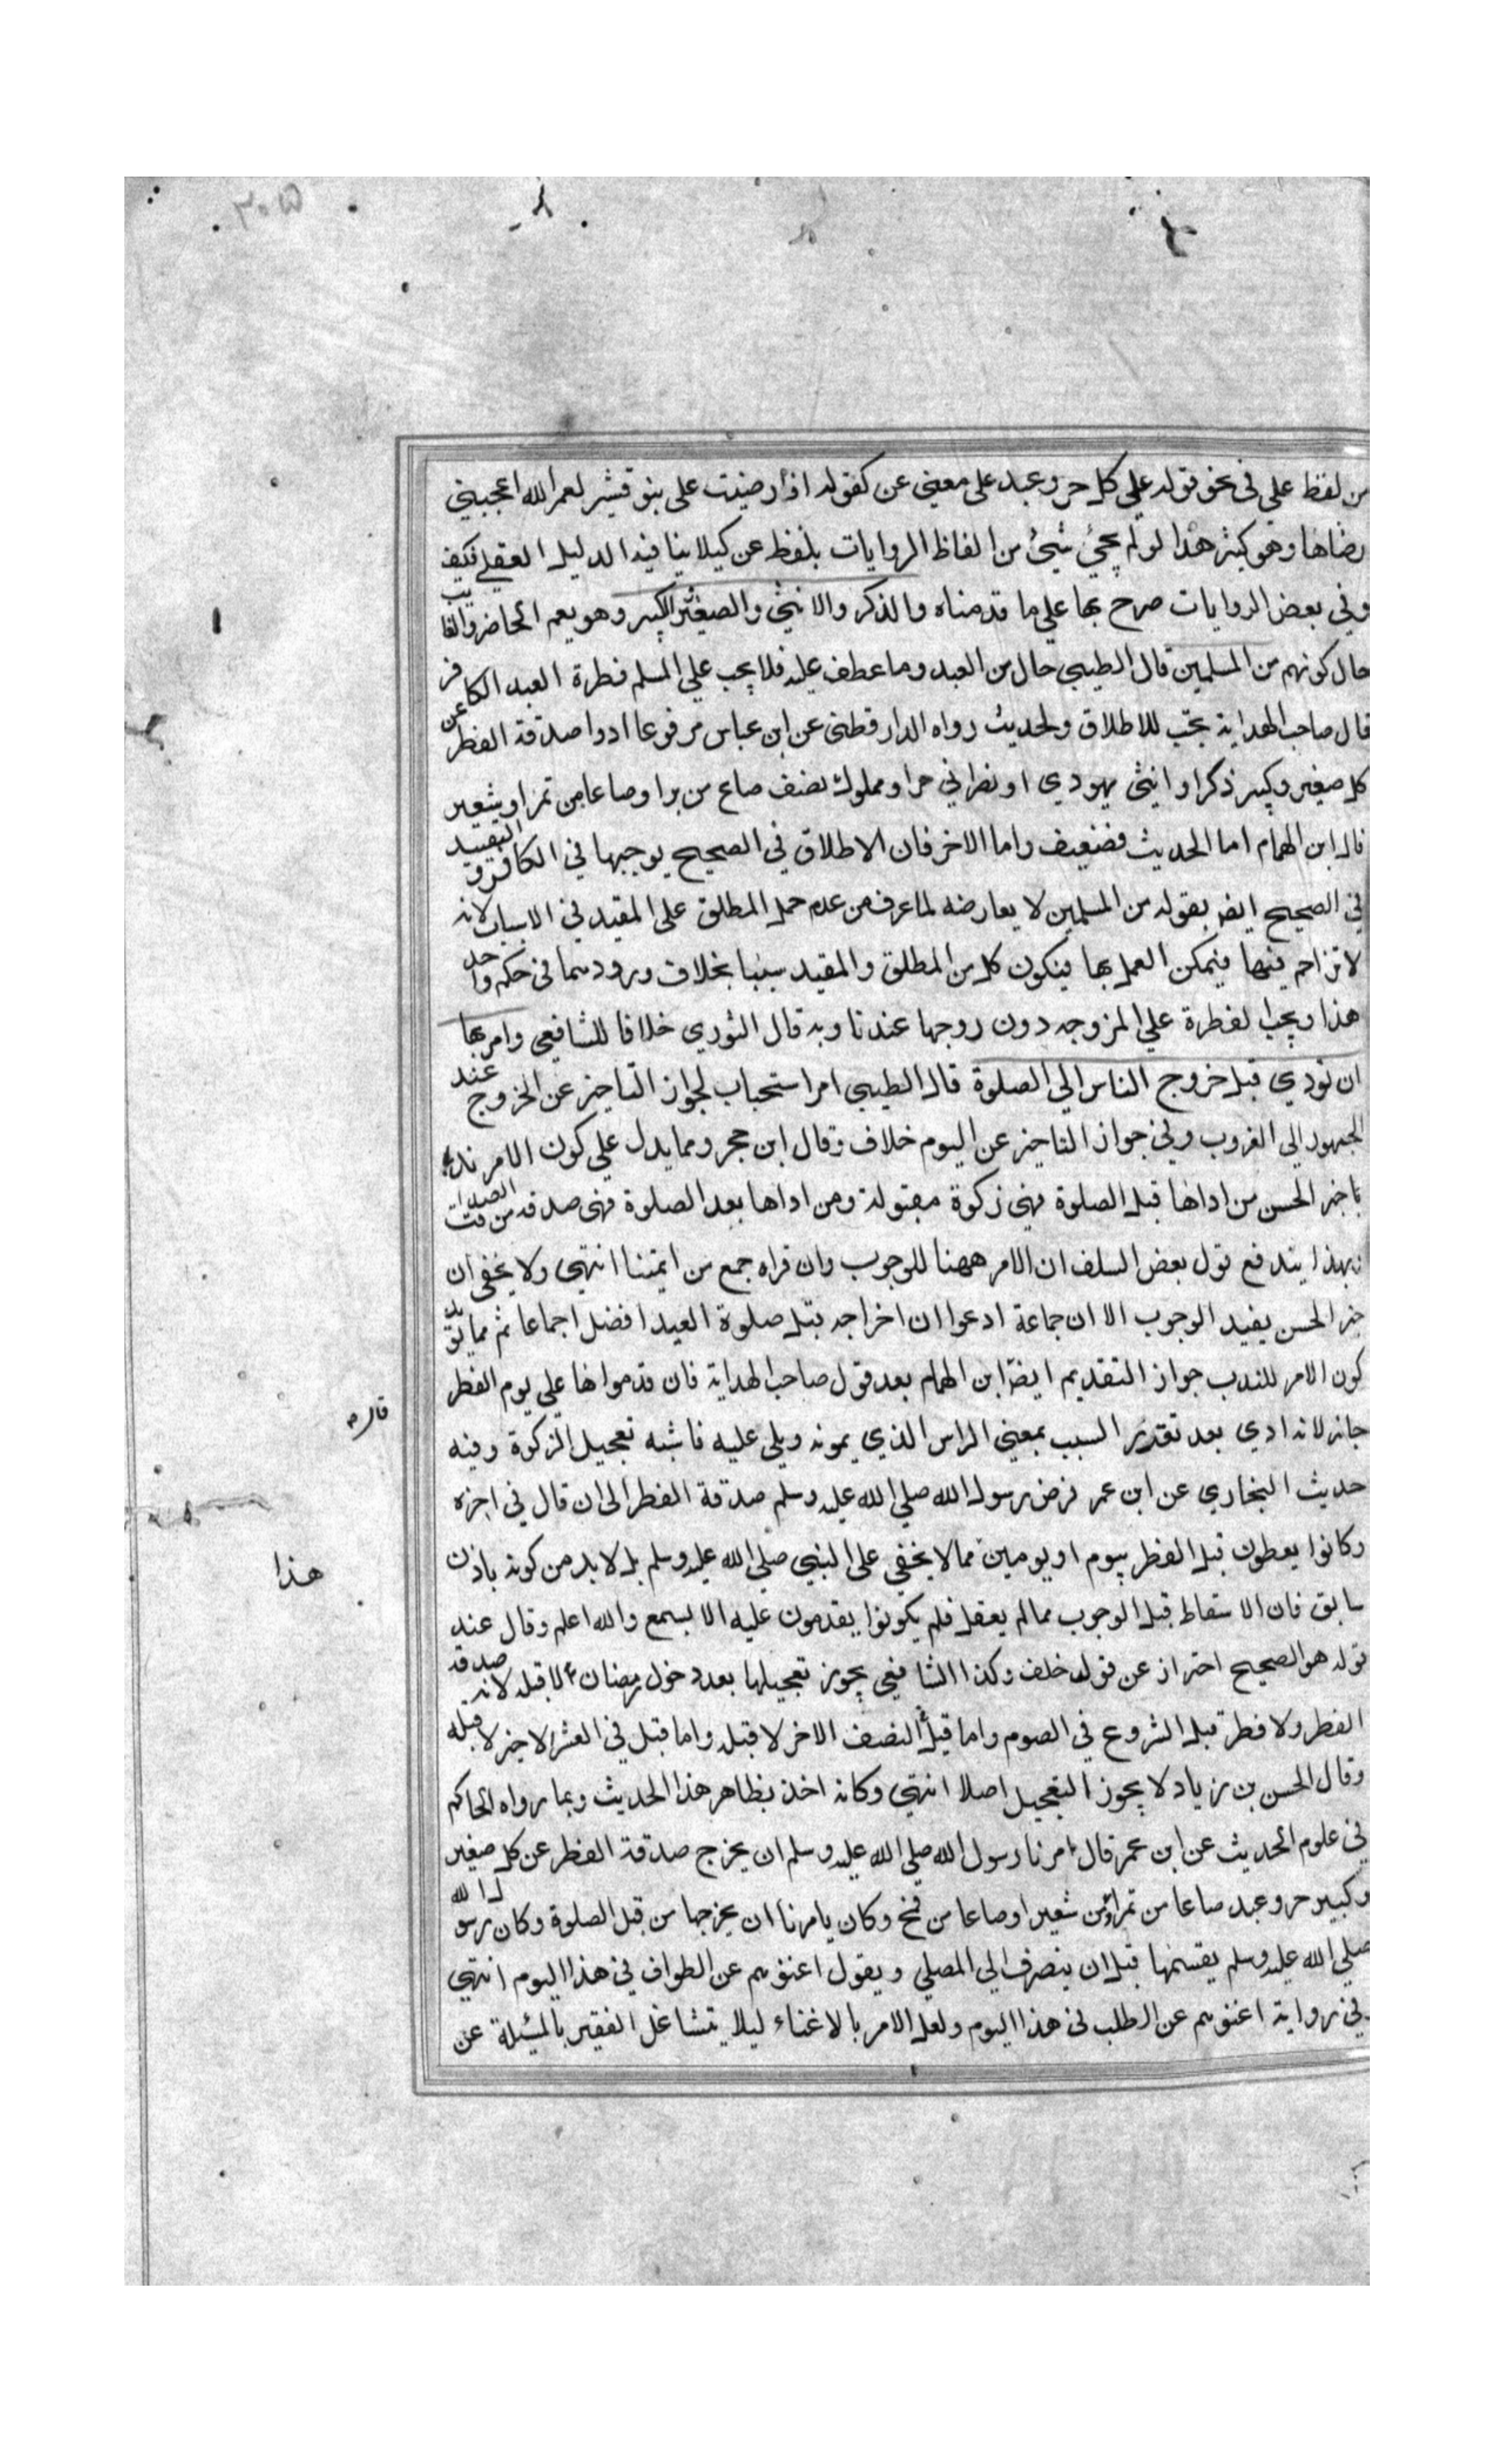 من لفظ على في نحو قوله على كل حر وعبد على معنى عن كقوله اذا رضيت على بنو قشير لعمر الله اعجبني
رضاها وهو كثير هذا لو لم يجئ شيئ من الفاظ الروايات بلفظ عن كيلا ينافيه الدليل العقلي فكيف
وفي بعض الروايات صرح بها على ما قدمناه والذكر والانثى والصغير والكبير وهو يعم الحاضر والغايب
حال كونهم من المسلمين قال الطيبي حال من العبد وما عطف عليه فلا يجب على المسلم فطرة العبد الكافر
قال صاحب الهداية يجب للاطلاق ولحديث رواه الدارقطني عن ابن عباس مرفوعا ادوا صدقة الفطر عن
كل صغير وكبير ذكر او انثى يهودي او نصراني حر او مملوك نصف صاع من بر او صاعا من تمر او شعير
قال ابن الهمام اما الحديث فضعيف واما الاخر فان الاطلاق في الصحيح يوجبها في الكافر والتقييد
في الصحيح ايضا بقوله من المسلمين لا يعارضه لما عرف من عدم حمل المطلق على المقيد في الاسباب لانه
لا تزاحم فيها فيمكن العمل بها فيكون كل من المطلق والمقيد سببا بخلاف ورودهما في حكم واحد
هذا ويجب الفطرة على المزوجه دون زوجها عندنا وبه قال الثوري خلافا للشافعي وامر بها
ان تودي قبل خروج الناس الى الصلوة قال الطيبي امر استحباب لجواز التاخير عن الخروج عند
الجمهور الى الغروب وفي جواز التاخير عن اليوم خلاف وقال ابن حجر ومما يدل على كون الامر ندبا
خبر الحسن من اداها قبل الصلوة فهي زكوة مقبولة ومن اداها بعد الصلوة فهي صدقه من الصدقات
وبهذا يندفع قول بعض السلف ان الامر ههنا للوجوب وان قراه جمع من ايمتنا انتهى ولا يخفى ان
خبر الحسن يفيد الوجوب الا ان جماعة ادعوا ان اخراجه قبل صلوة العيد افضل اجماعا ثم مما يويد
كون الامر للندب جواز التقديم ايضا ابن الهمام بعد قول صاحب الهداية فان قدموها على يوم الفطر
قال
جاز لانه ادي بعد تقرر السبب بمعنى الراس الذي يمونه ويلي عليه فاشبه تعجيل الزكوة وفيه
حديث البخاري عن ابن عمر فرض رسول الله صلى الله عليه وسلم صدقة الفطر الى ان قال في اخره
وكانوا يعطون قبل الفطر بيوم او يومين مما لا يخفى على النبي صلى الله عليه وسلم بل لا بد من كونه باذن
هذا
سابق فان الاسقاط قبل الوجوب مما لم يعقل فلم يكونوا يقدمون عليه الا بسمع والله اعلم وقال عند
قوله هو الصحيح احتراز عن قول خلف وكذا الشافعي يجوز تعجيلها بعد دخول رمضان لا قبله لانه صدقة
الفطر ولا فطر قبل الشروع في الصوم واما قيل النصف الاخر لا قبله واما قيل في العشر الاخير لا قبله
وقال الحسن بن زياد لا يجوز التعجيل اصلا انتهى وكانه اخذ بظاهر هذا الحديث وبما رواه الحاكم
في علوم الحديث عن ابن عمر قال امرنا رسول الله صلى الله عليه وسلم ان يخرج صدقة الفطر عن كل صغير
وكبير حر وعبد صاعا من تمر او من شعير او صاعا من قمح وكان يامرنا ان يخرجها من قبل الصلوة وكان رسول الله
صلى الله عليه وسلم يقسمها قبل ان ينصرف الى المصلي ويقول اغنوهم عن الطواف في هذا اليوم انتهى
وفي رواية اغنوهم عن الطلب في هذا اليوم ولعل الامر بالاغناء ليلا يتشاغل الفقير بالمسئلة عن